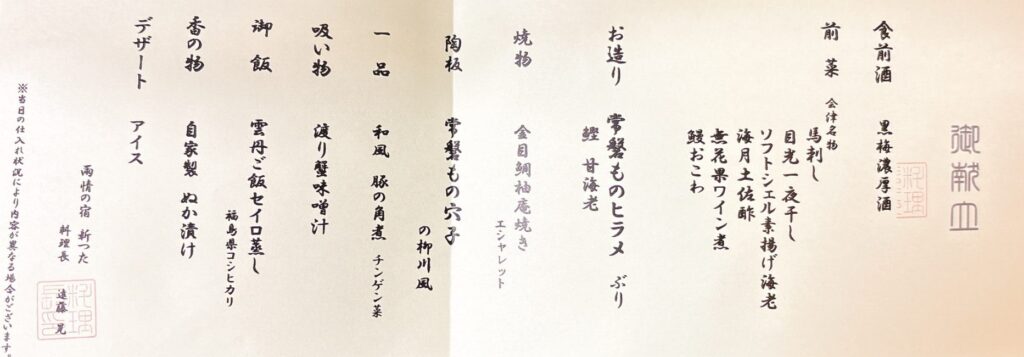 御献立
食前酒　黒梅濃厚酒
前菜　会津名物
馬刺し
目光一夜干し
ソフトシェル素揚げ海老
海月土佐酢
無花果ワイン煮
鰻おこわ
お造り　常磐ものヒラメ　ぶり
鰹　甘海老
焼物　金目鯛柚庵焼き
エシャレット
陶板　常磐もの穴子
の柳川風
一品　和風　豚の角煮　チンゲン菜
吸い物　渡り蟹味噌汁
御飯　雲丹ご飯セイロ蒸し
福島県コシヒカリ
香の物　自家製　ぬか漬け
デザート　アイス
雨情の宿　新つた
料理長　遠藤　晃
※当日の仕入れ状況により内容が異なる場合がございます。